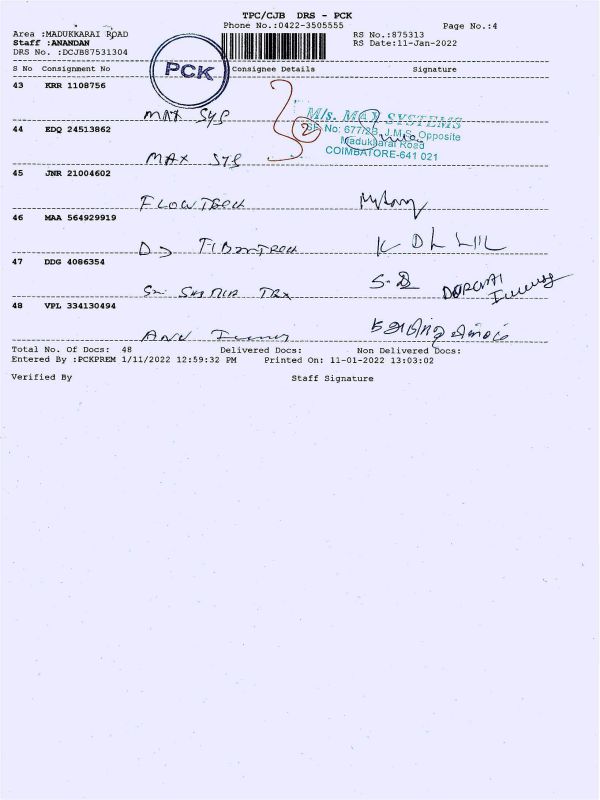 TPC/CJB DRS - PCK
Phone No.:0422-3505555
Page No.:4
Area :MADUKKARAI ROAD
RS No.:875313
Staff :ANANDAN
RS Date:11-Jan-2022
DRS No. :DCJB87531304
PCK
S No Consignment No Consignee Details Signature
43 KRR 1108756
MAX SYS
M/s. MAX SYSTEMS
SF. No: 677/2B, J.M.S. Opposite
Madukkarai Road
COIMBATORE-641 021
2
44 EDQ 24513862
MAX SYS
45 JNR 21004602
FLOWTECH
46 MAA 564929919
K D L
47 DDG 4086354
S.D
48 VPL 334130494
Total No. Of Docs: 48 Delivered Docs: Non Delivered Docs:
Entered By :PCKPREM 1/11/2022 12:59:32 PM Printed On: 11-01-2022 13:03:02
Verified By Staff Signature